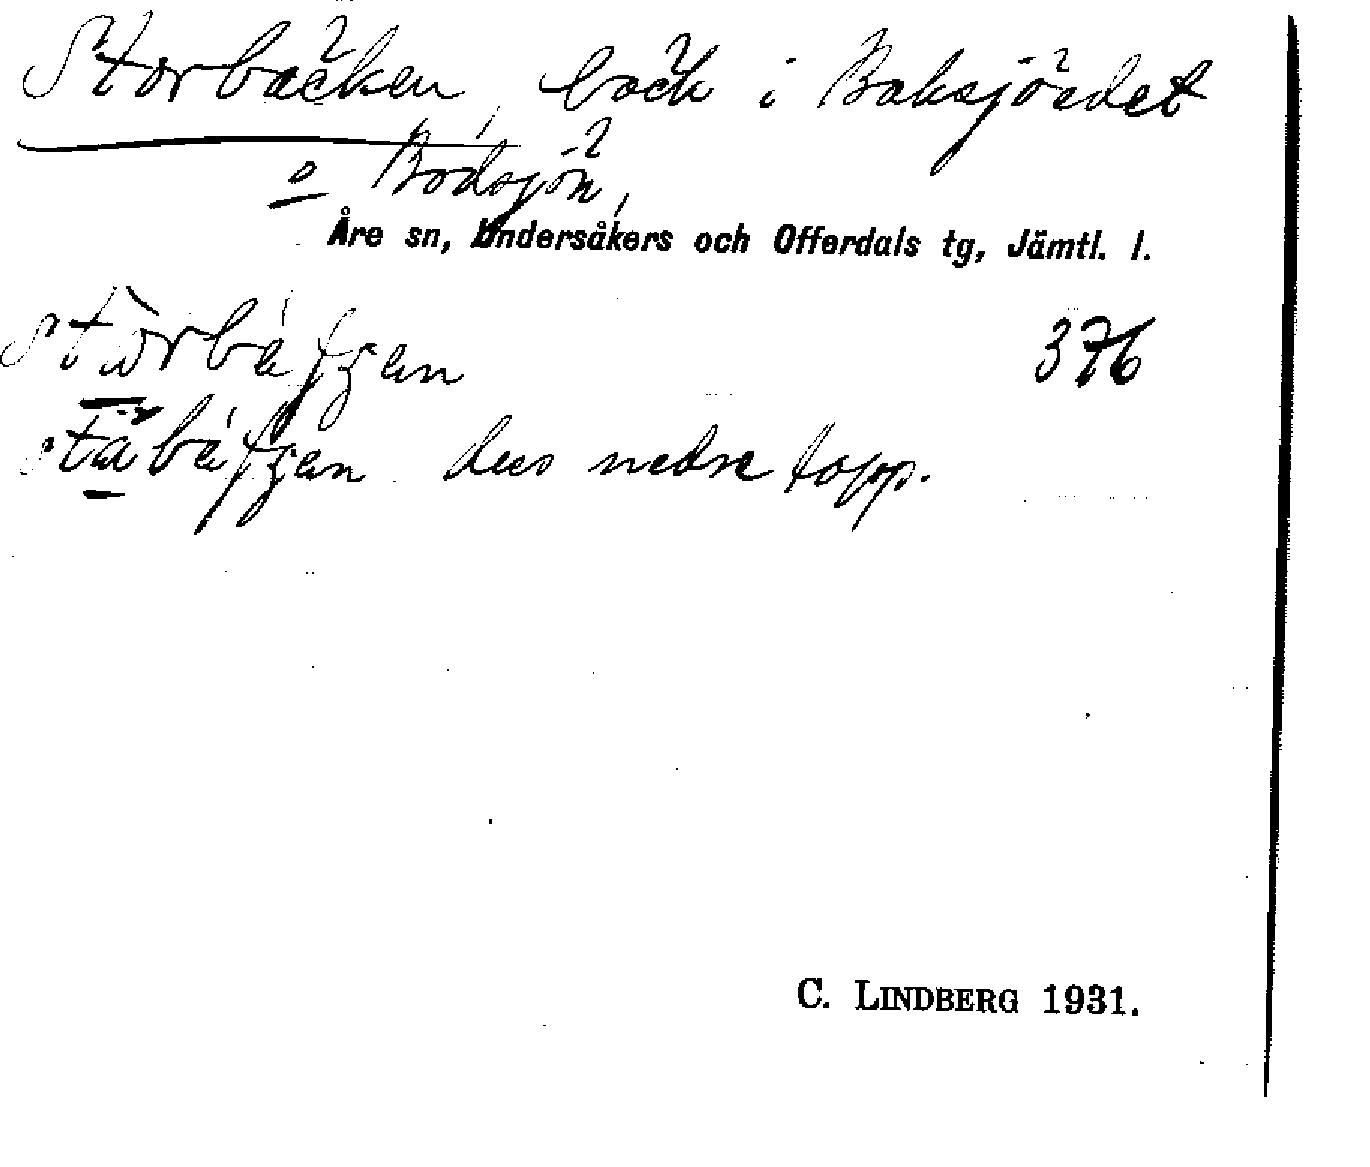 Storbäcken, bäck i Baksjöedet
o Bodsjön,
Åre sn, Undersåkers och Offerdals tg, Jämtl. l.
376
dess nedre lopp.
C. LINDBERG 1931.